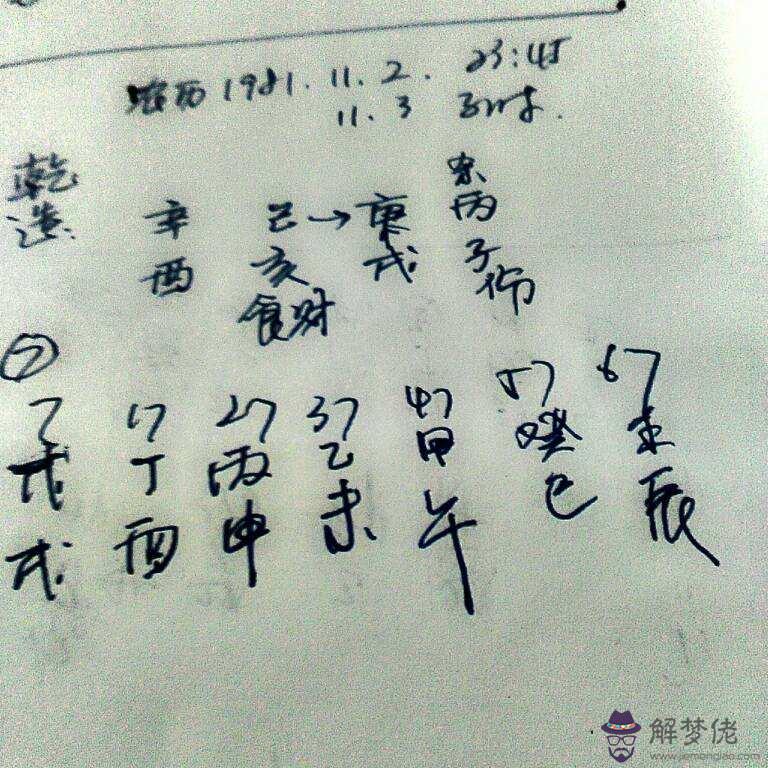 农历1981.11.2. 23:45
11.3 子时.
乾造 辛 己→庚 杀丙
酉 亥 戌 子伤
食财
⑦
7 17 27 37 47 57 67
戊 丁 丙 乙 甲 癸
戌 酉 申 未 午 巳 辰
解梦佬
www.jiemenglao.com